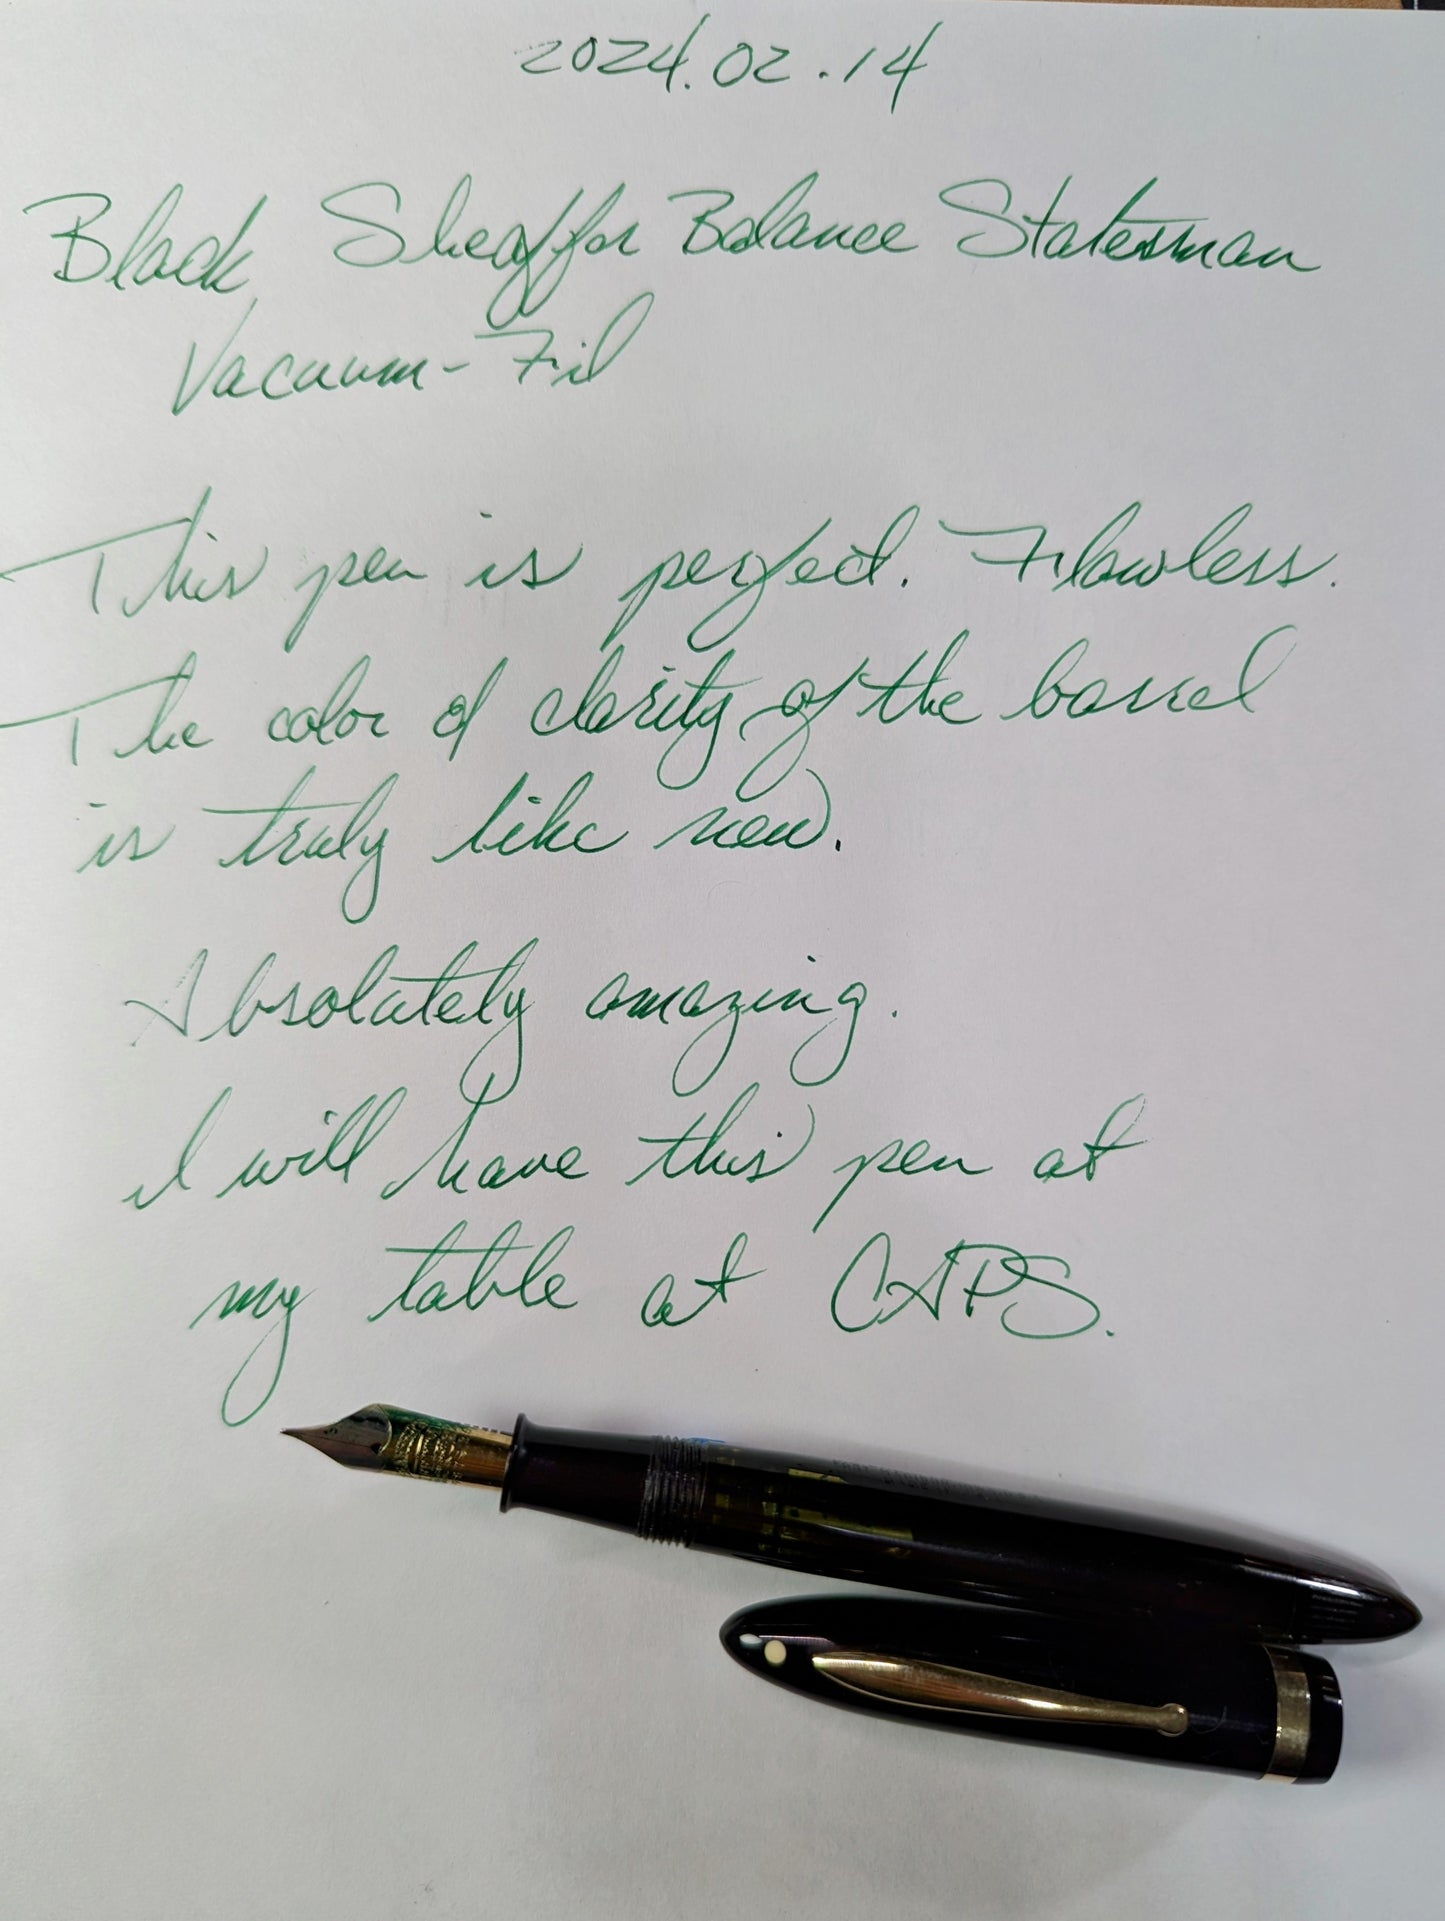 2024.02.14
Black Sheaffer Balance Statesman
Vacuum-Fil
This pen is perfect. Flawless.
The color of clarity of the barrel
is truly like new.
Absolutely amazing.
I will have this pen at
my table at CAPS.